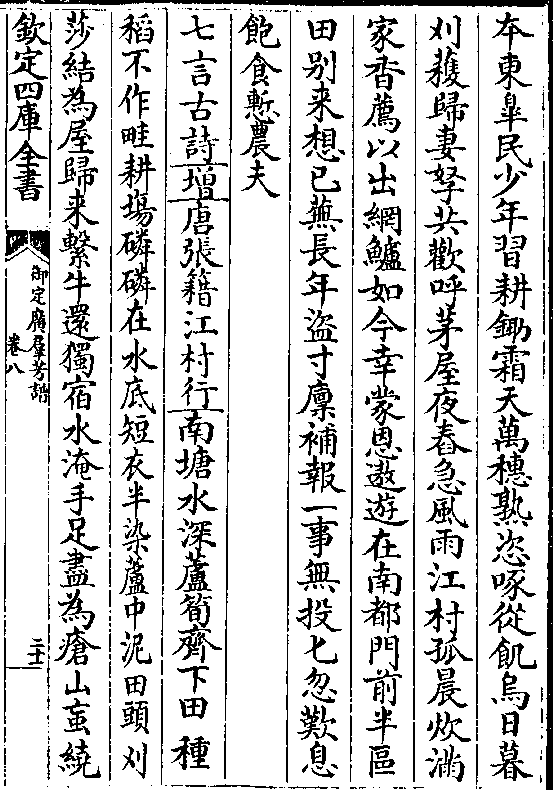 本東臯民少年習耕鋤霜天萬穗熟恣啄從飢烏日暮
刈穫歸妻孥共歡呼茅屋夜舂急風雨江村孤晨炊滿
家香薦以出網鱸如今幸蒙恩遨遊在南都門前半區
田别来想已蕪長年盜寸廪補報一事無投匕忽歎息
飽食慙農夫
七言古詩增唐張籍江村行南塘水深蘆筍齊下田種
稻不作畦耕塲磷磷在水底短衣半染蘆中泥田頭刈
莎結為屋歸来繫牛還獨宿水淹手足盡為瘡山䖟繞
欽定四庫全書
御定廣羣芳譜
卷八
二十二